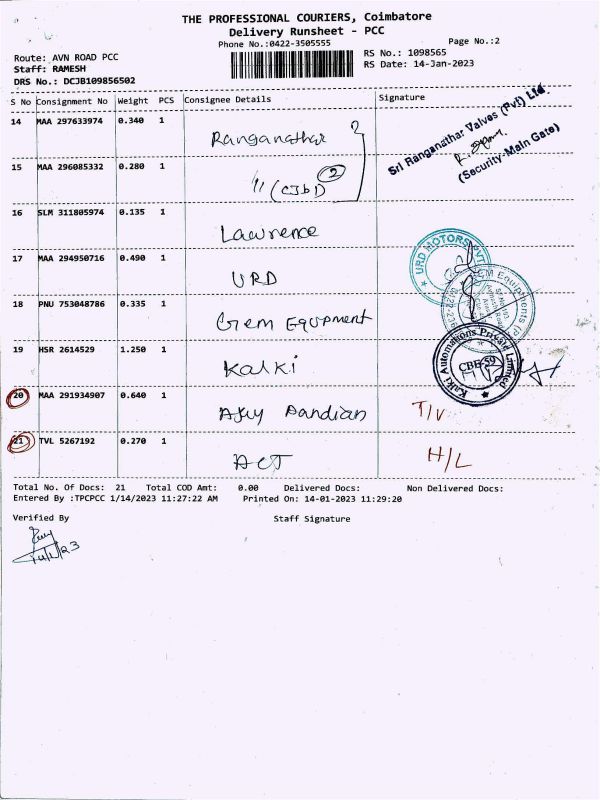 THE PROFESSIONAL COURIERS, Coimbatore
Delivery Runsheet - PCC
Phone No.:0422-3505555
Page No.:2
Route: AVN ROAD PCC
RS No.: 1098565
Staff: RAMESH
RS Date: 14-Jan-2023
DRS No.: DCJB109856502
S No Consignment No Weight PCS Consignee Details Signature
14 MAA 297633974 0.340 1 Ranganathar
Sri Ranganathar Valves (Pvt) Ltd
(Security-Main Gate)
15 MAA 296085332 0.280 1 11 (CJb1) 2
16 SLM 311805974 0.135 1 Lawrence
17 MAA 294950716 0.490 1 URD
URD MOTORS PVT
18 PNU 753048786 0.335 1 Gem Equpment
GEM Equipments (P)
19 HSR 2614529 1.250 1 Kalki
Kalki Automations Private Limited
CBE-59
20 MAA 291934907 0.640 1 Ajuy Pandian T/V
21 TVL 5267192 0.270 1 ACT H/L
Total No. Of Docs: 21 Total COD Amt: 0.00 Delivered Docs: Non Delivered Docs:
Entered By :TPCPCC 1/14/2023 11:27:22 AM Printed On: 14-01-2023 11:29:20
Verified By Staff Signature